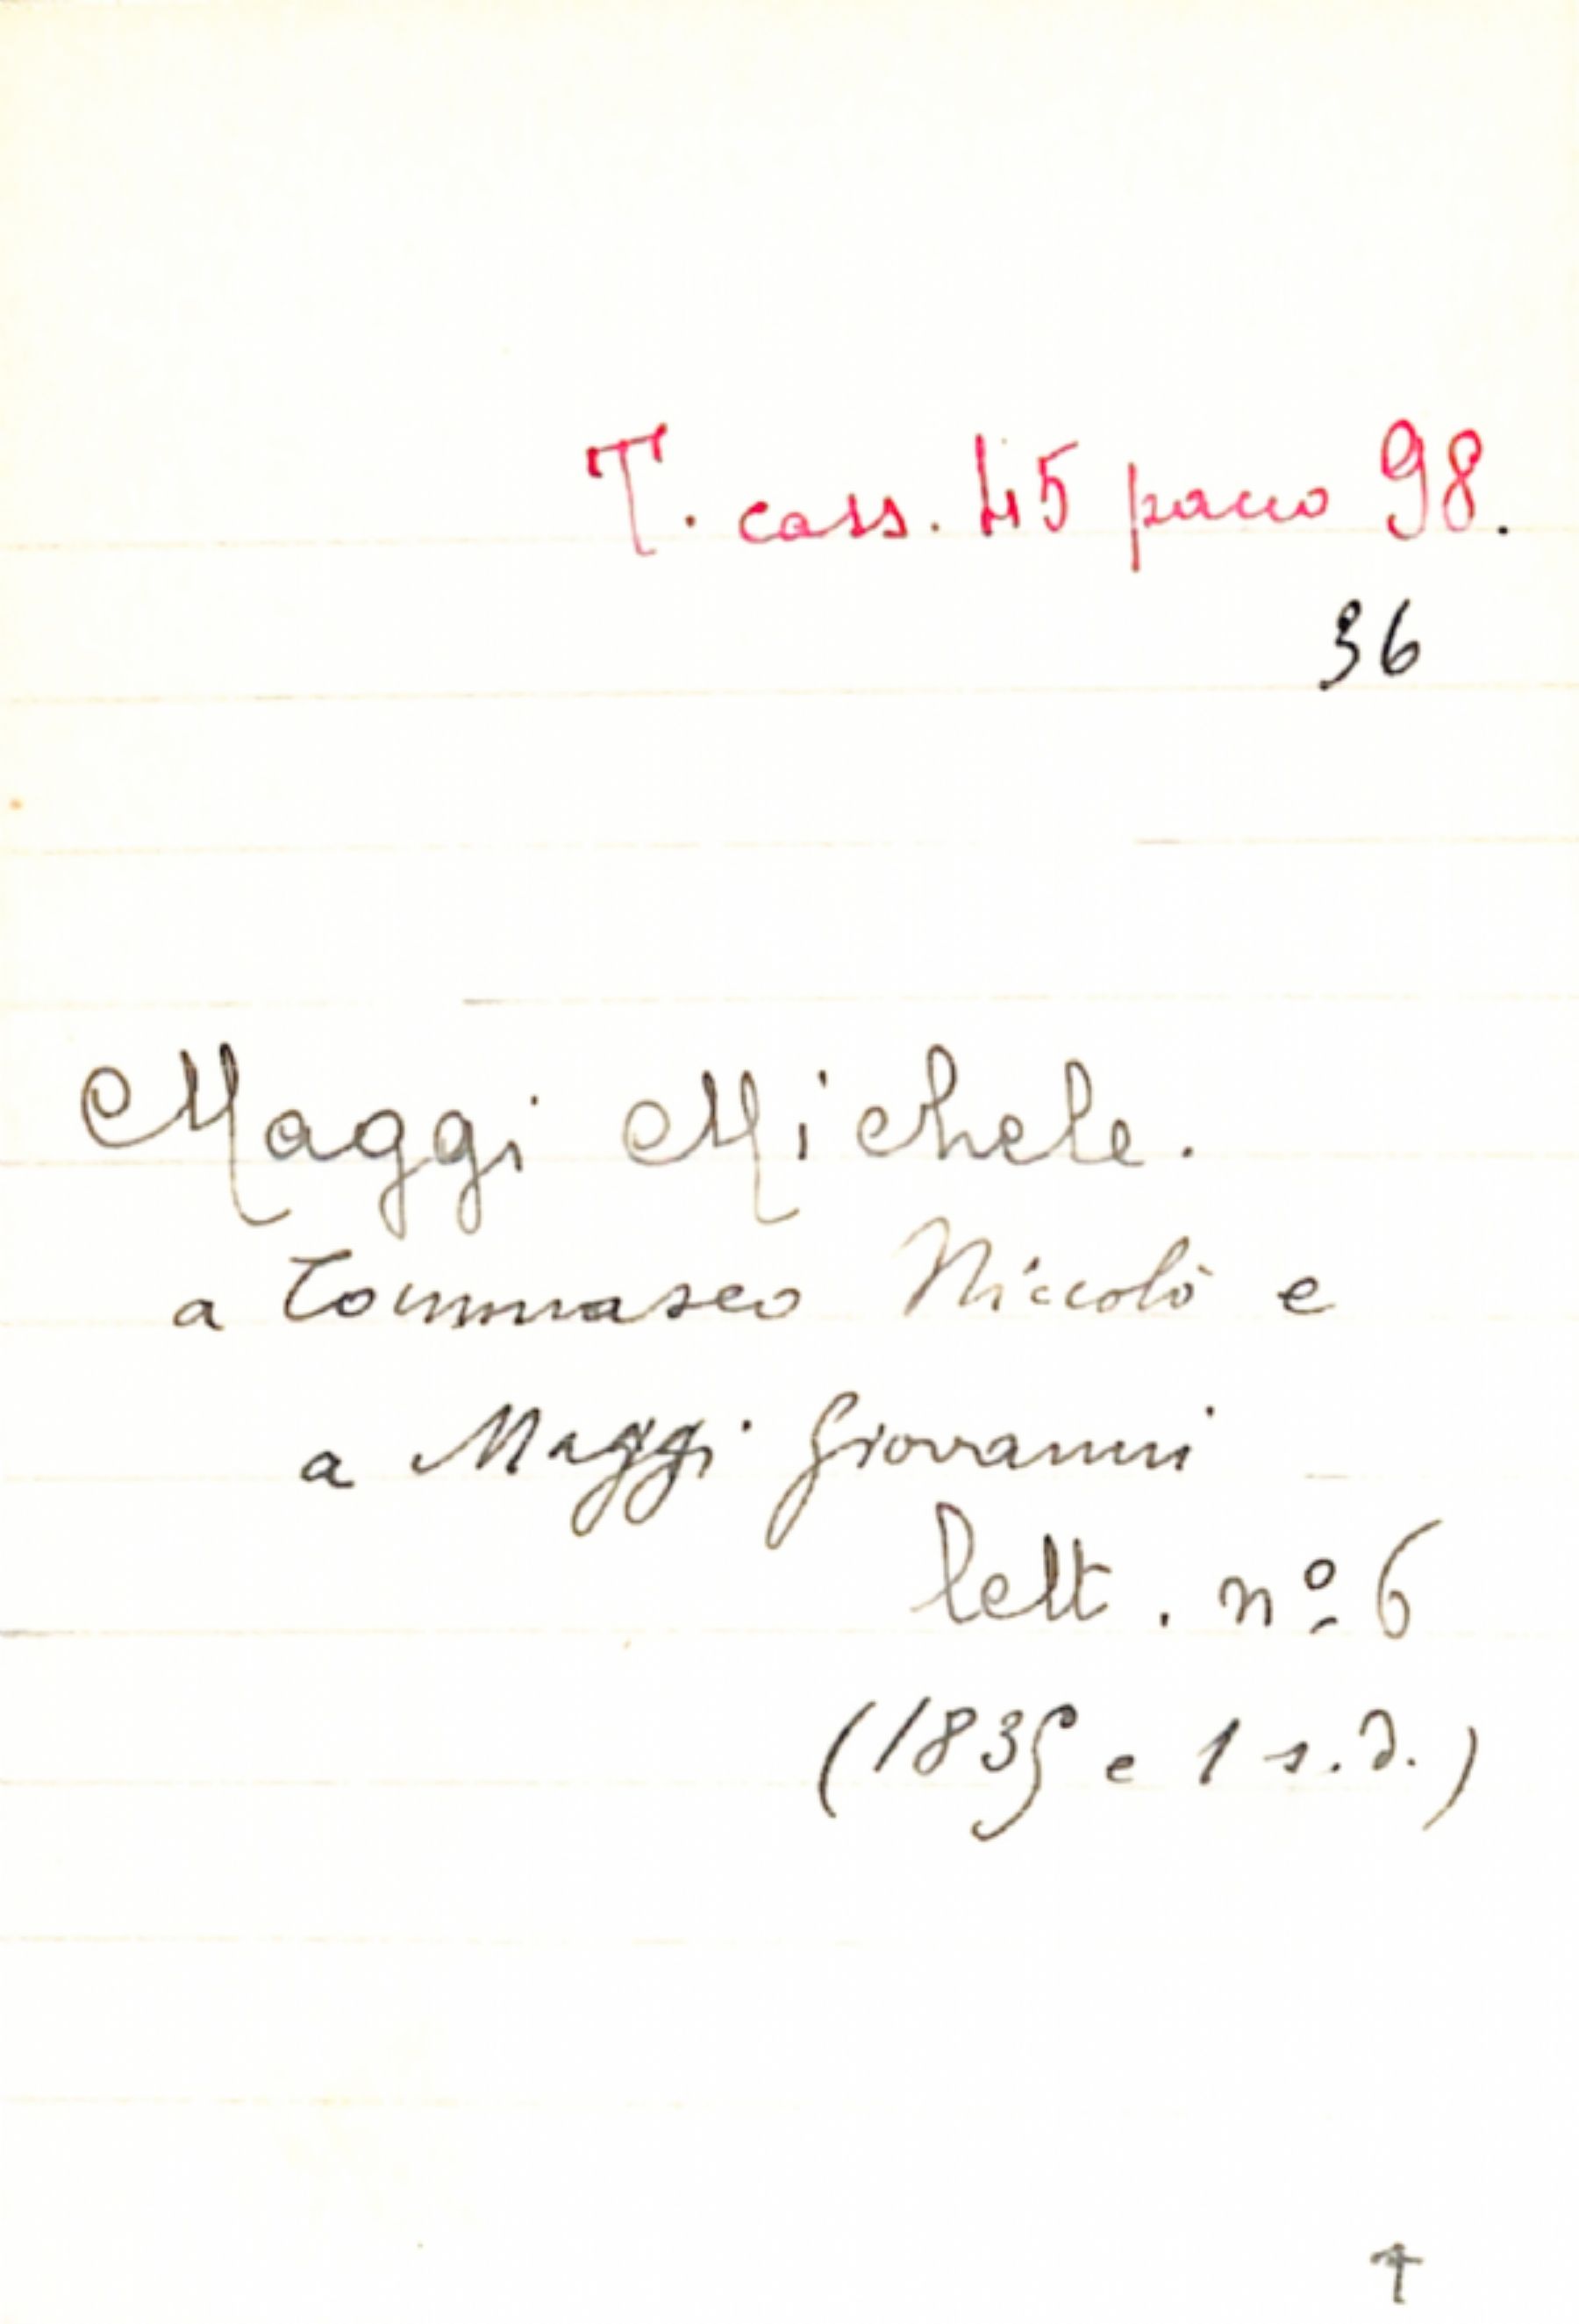 T. cass. 45 pacco 98.
36
Maggi Michele.
a Tommaseo Niccolò e
a Maggi Giovanni
lett. nº 6
(1835 e 1 s.d.)